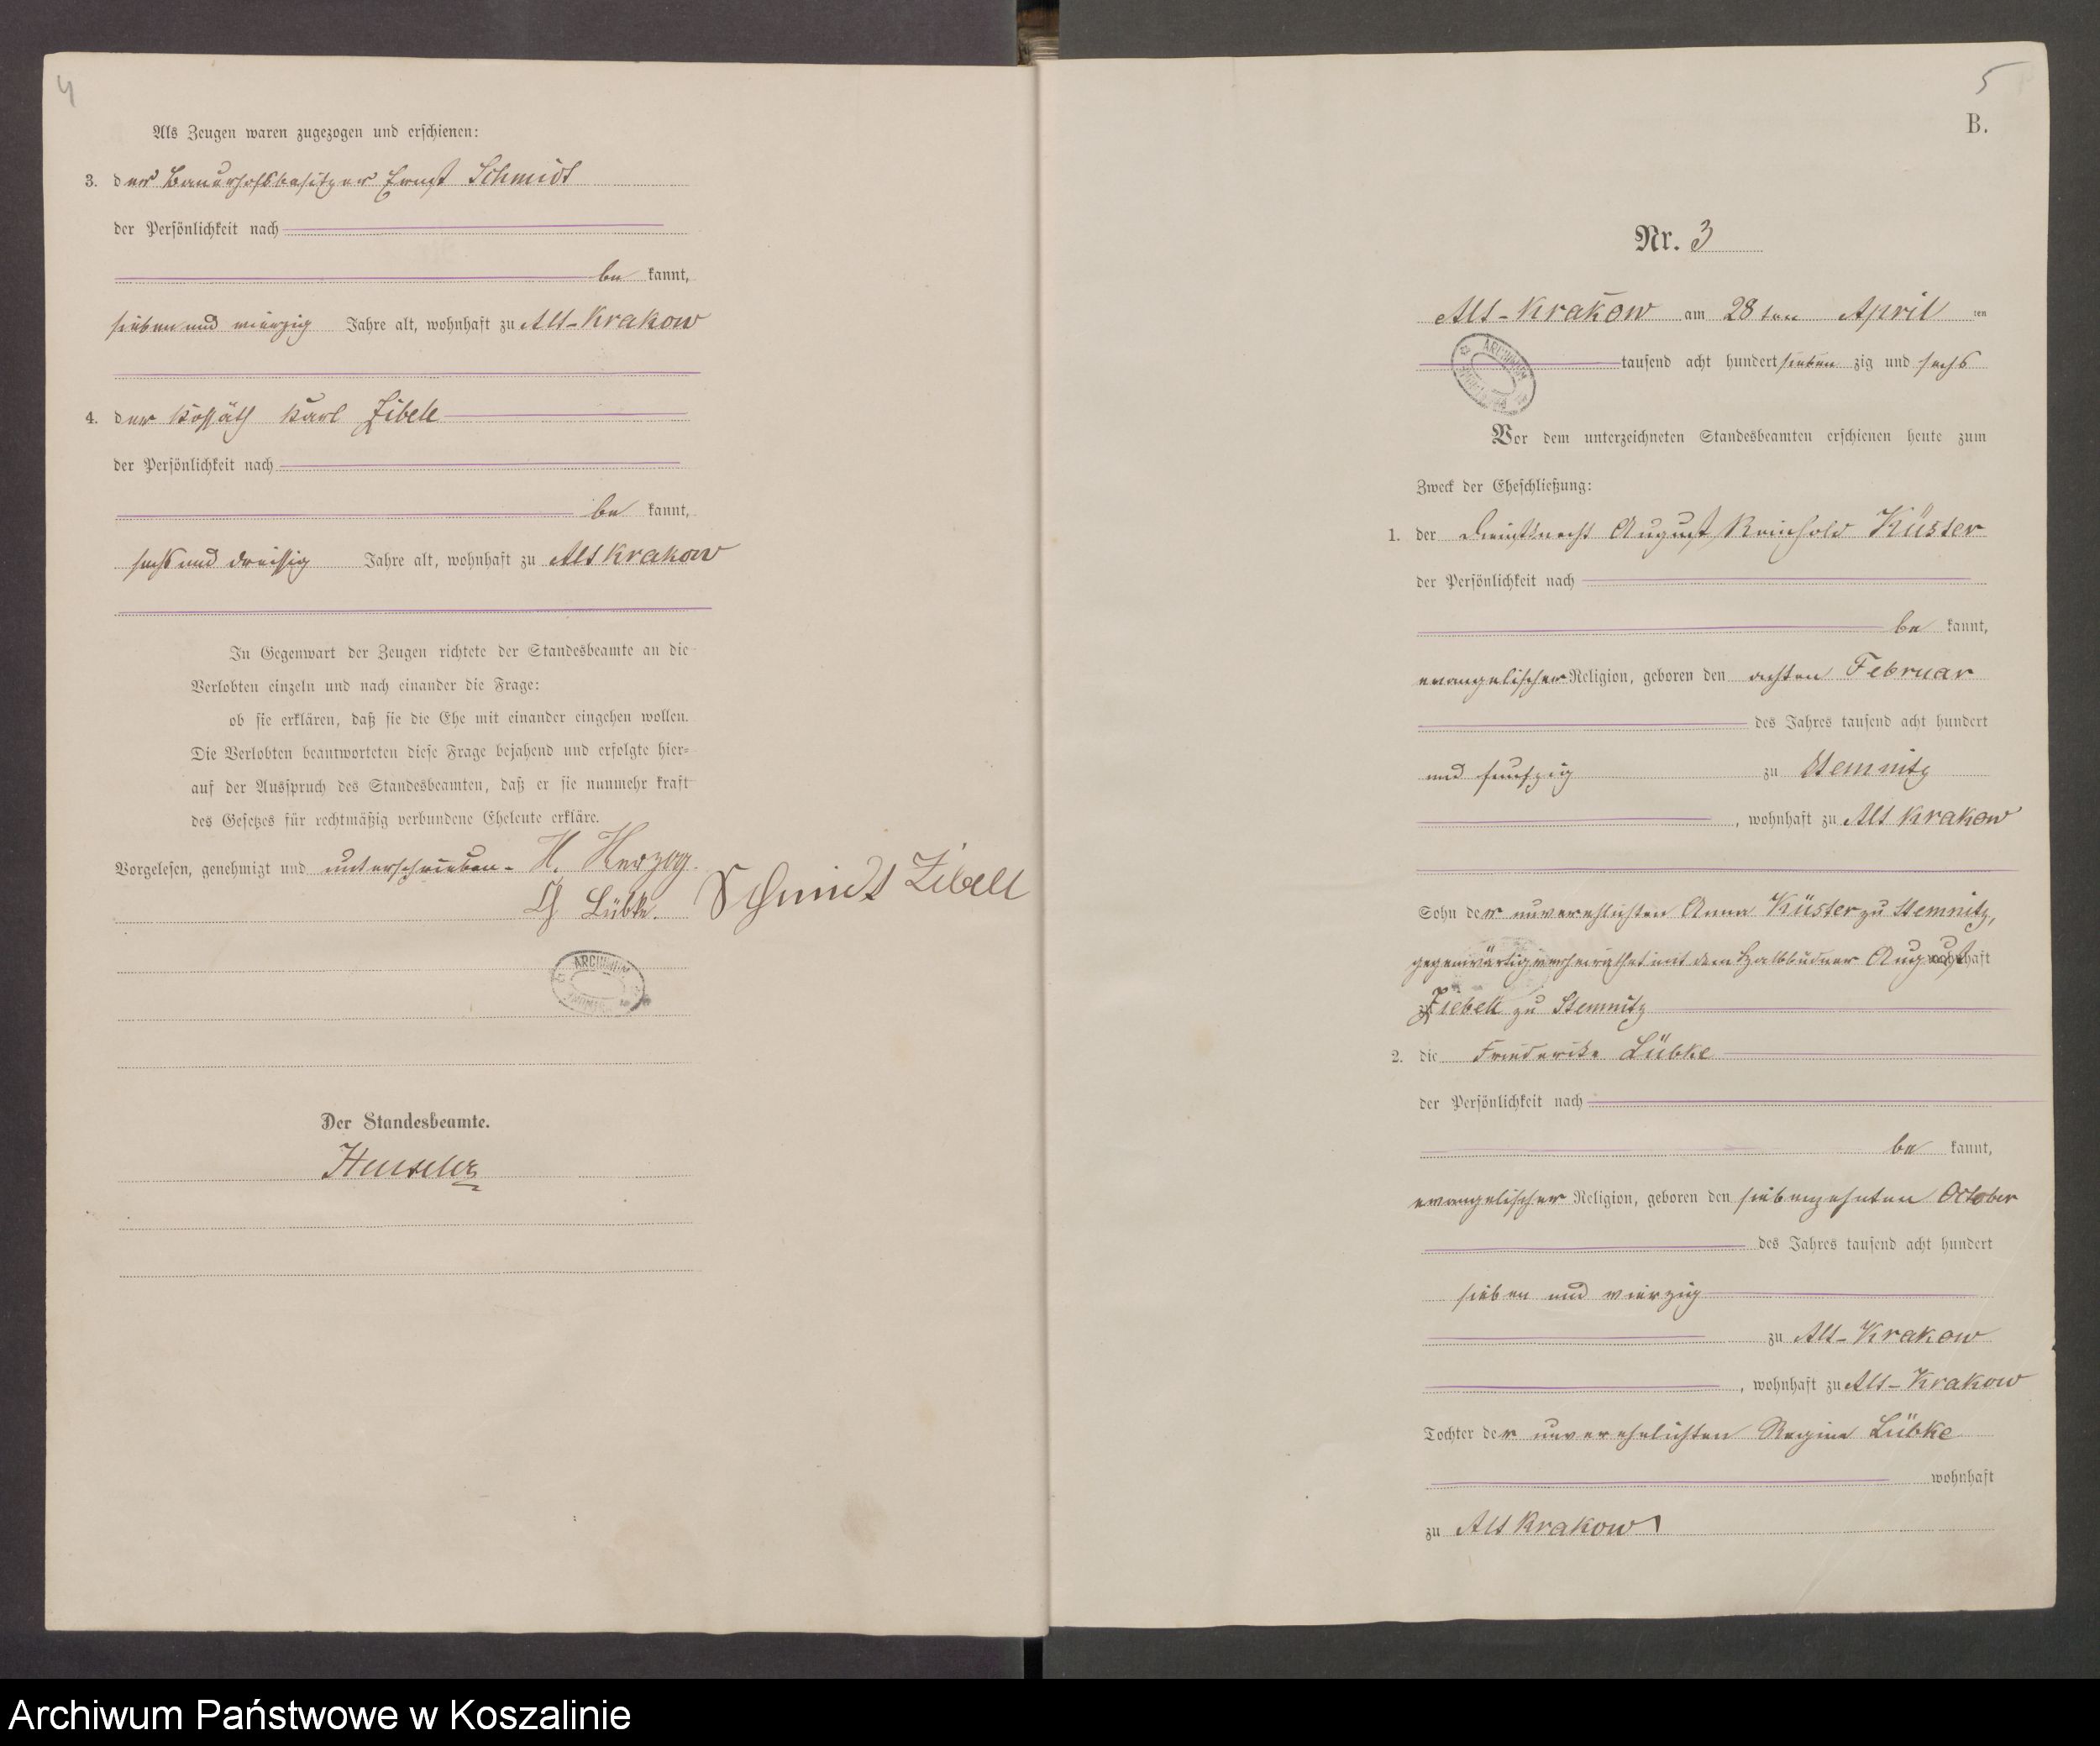 4
Als Zeugen waren zugezogen und erschienen:
3. der Bauerhofsbesitzer Ernst Schmidt
der Persönlichkeit nach
be kannt,
sieben und vierzig Jahre alt, wohnhaft zu Alt-Krakow
4. der Kossäth Karl Zibell
der Persönlichkeit nach
be kannt,
sechs und dreissig Jahre alt, wohnhaft zu Alt Krakow
In Gegenwart der Zeugen richtete der Standesbeamte an die
Verlobten einzeln und nach einander die Frage:
ob sie erklären, daß sie die Ehe mit einander eingehen wollen.
Die Verlobten beantworteten diese Frage bejahend und erfolgte hier-
auf der Ausspruch des Standesbeamten, daß er sie nunmehr kraft
des Gesetzes für rechtmäßig verbundene Eheleute erkläre.
Vorgelesen, genehmigt und unterschrieben- H. Herzog.
Lübke. Schmidt Zibell
ARCHIWUM
Der Standesbeamte.
5
B.
Nr. 3
Alt-Krakow am 28 ten April ten
tausend acht hundert sieben zig und sechs
ARCHIWUM
Vor dem unterzeichneten Standesbeamten erschienen heute zum
Zweck der Eheschließung:
1. der Dienstknecht August Reinhold Küster
der Persönlichkeit nach
be kannt,
evangelischer Religion, geboren den achten Februar
des Jahres tausend acht hundert
und funfzig zu Stemnitz
, wohnhaft zu Alt Krakow
Sohn der unverehlichten Anna Küster zu Stemnitz,
gegenwärtig verheirathet mit dem Halbbüdner August wohnhaft
zu Ziebell zu Stemnitz
2. die Friederike Lübke
der Persönlichkeit nach
be kannt,
evangelischer Religion, geboren den siebenzehnten October
des Jahres tausend acht hundert
sieben und vierzig
zu Alt-Krakow
, wohnhaft zu Alt-Krakow
Tochter der unverehelichten Regine Lübke
wohnhaft
zu Alt Krakow
Archiwum Państwowe w Koszalinie